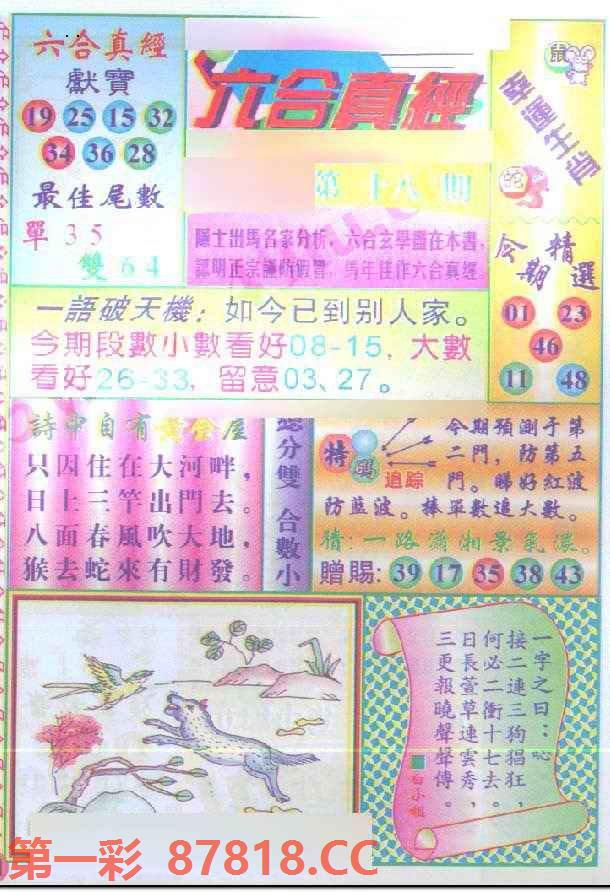 六合真經
獻寶
19 25 15 32
34 36 28
最佳尾數
單 3 5
雙 6 4
六合真經
第十八期
隱士出馬名家分析，六合玄學盡在本書，
認明正宗謹防假冒，馬年佳作六合真經。
鼠
幸運生肖
蛇
今期精選
01 23
46
11 48
一語破天機：如今已到别人家。
今期段數小數看好08-15，大數
看好26-33，留意03、27。
詩中自有黃金屋
只因住在大河畔，
日上三竿出門去。
八面春風吹大地，
猴去蛇來有財發。
總分雙 合數小
特碼
追踪
今期預測于第
二門，防第五
門。睇好紅波
防藍波。捧單數追大數。
猜：一路瀟湘景氣濃。
贈賜：39 17 35 38 43
一字之曰：吣
接二連三狗猖狂，
何必二衝十七去。
日長萱草連雲秀，
三更報曉聲聲傳。
白小姐
第一彩 87818.CC